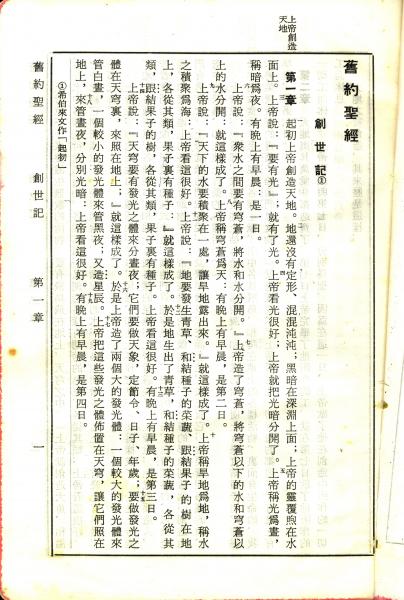 上帝創造
天地
舊約聖經
創世記①
第一章　起初上帝創造天地。地還沒有定形、混混沌沌；黑暗在深淵上面；上帝的靈覆煦在水
面上。上帝說：『要有光』；就有了光。上帝看光很好；上帝就把光暗分開了。上帝稱光爲晝，
稱暗爲夜。有晚上有早晨：是一日。
上帝說：『衆水之間要有穹蒼，將水和水分開。』上帝造了穹蒼，將穹蒼以下的水和穹蒼以
上的水分開。就這樣成了。上帝稱穹蒼爲天：有晚上有早晨，是第二日。
上帝說：『天下的水要積聚在一處，讓旱地露出來。』就這樣成了。上帝稱旱地爲地，稱水
之積聚爲海：上帝看這很好。上帝說：『地要發生青草、和結種子的菜蔬、跟結果子的樹在地
上，各從其類，果子裏有種子：』就這樣成了。於是地生出了青草，和結種子的菜蔬，各從其
類，跟結果子的樹，各從其類，果子裏有種子。上帝看這很好。有晚上有早晨，是第三日。
上帝說：『天穹要有發光之體來分晝夜；它們要做天象，定節令、日子、年歲；要做發光之
體在天穹裏，來照在地上；』就這樣成了。於是上帝造了兩個大的發光體：一個較大的發光體來
管白晝，一個較小的發光體來管黑夜；又造星辰。上帝把這些發光之體佈置在天穹，讓它們照在
地上，來管晝夜，分別光暗：上帝看這很好。有晚上有早晨，是第四日。
①希伯來文作「起初」
舊約聖經　創世記　第一章　一